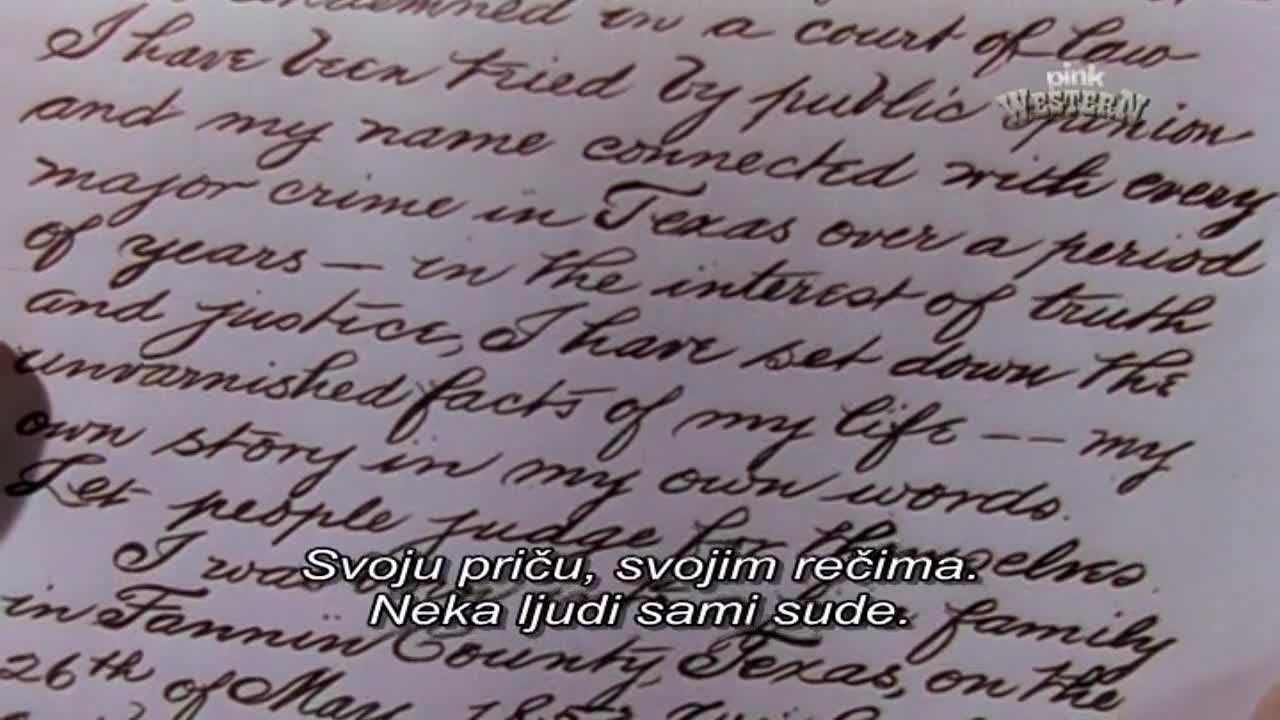 condemned in a court of law
I have been tried by public opinion
and my name connected with every
major crime in Texas over a period
of years — in the interest of truth
and justice, I have set down the
unvarnished facts of my life -- my
own story in my own words.
Let people judge for themselves.
I was family
in Fannin County, Texas, on the
26th of May
pink
WESTERN
Svoju priču, svojim rečima.
Neka ljudi sami sude.